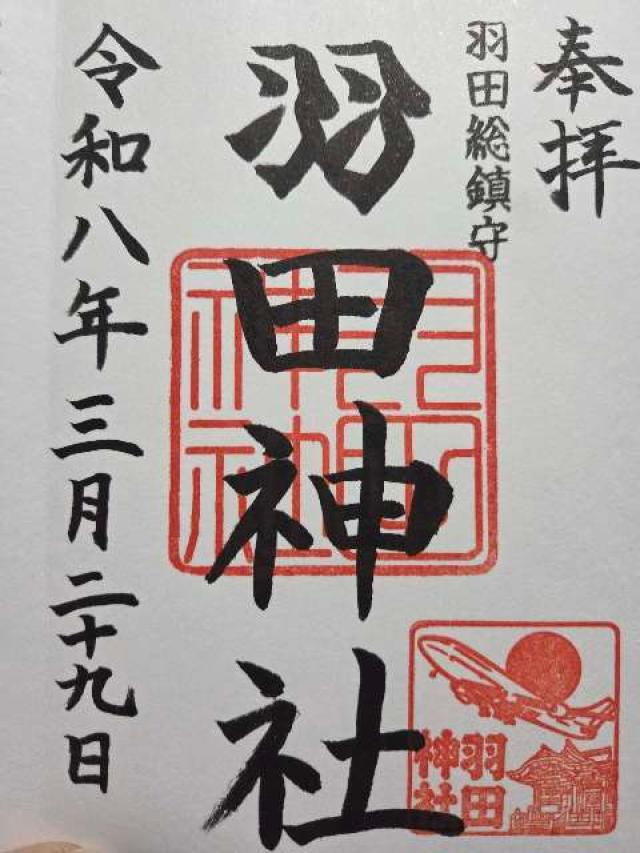 奉拝
羽田総鎮守
羽田神社
令和八年三月二十九日
羽田神社
羽田
神社